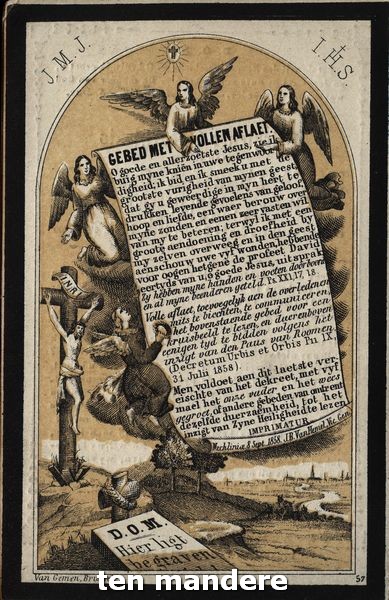 J. M. J.
I H S.
GEBED MET VOLLEN AFLAET.
O goede en allerzoetste Jesus, zie ik
buig myne knièn in uwe tegenwoor-
digheid; ik bid en ik smeek u met de
grootste vurigheid van mynen geest
dat gy u geweerdige in myn hert te
drukken levende gevoelens van geloof,
hoop en liefde, een waer berouw over
myne zonden en eenen zeer vasten wil
van my te beteren; terwyl ik met een
groote meêdoening en droefheid by
my zelven overweeg en in den geest
aenschouw uwe vyf wonden, hebbende
voor oogen hetgene de profeet David
eertyds van u, o goede Jesus, uitsprak:
Zy hebben myne handen en voeten doorboord
al myne beenderen geteld. Ps. XXI, 17, 18.
Volle aflaet, toevoegelyk aen de overledenen
mits te biechten, te communiceren,
het bovenstaende gebed voor een
kruisbeeld te lezen, en daerenboven
eenigen tyd te bidden volgens het
inzigt van den Paus van Roomen.
(Decretum Urbis et Orbis Pii IX,
31 Julii 1858)
Men voldoet aen dit laetste ver-
eischte van het dekreet, met vyf
mael het onze vader en het wees
gegroet, of andere gebeden van omtrent
dezelfde duerzaemheid, tot het
inzigt van Zyne Heiligheid te lezen.
IMPRIMATUR
Mechliniæ 8 Sept. 1858. J.B. Van Hemel, Vic. Gen.
INRI
D. O. M.
Hier ligt
begraven
Van Gemen, 
57
ten mandere